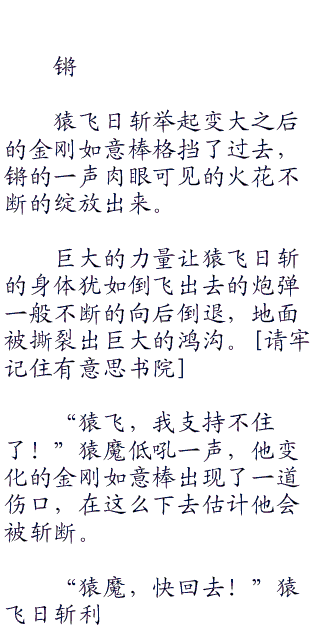 锵
猿飞日斩举起变大之后
的金刚如意棒格挡了过去，
锵的一声肉眼可见的火花不
断的绽放出来。
巨大的力量让猿飞日斩
的身体犹如倒飞出去的炮弹
一般不断的向后倒退，地面
被撕裂出巨大的鸿沟。[请牢
记住有意思书院]
“猿飞，我支持不住
了！”猿魔低吼一声，他变
化的金刚如意棒出现了一道
伤口，在这么下去估计他会
被斩断。
“猿魔，快回去！”猿
飞日斩利